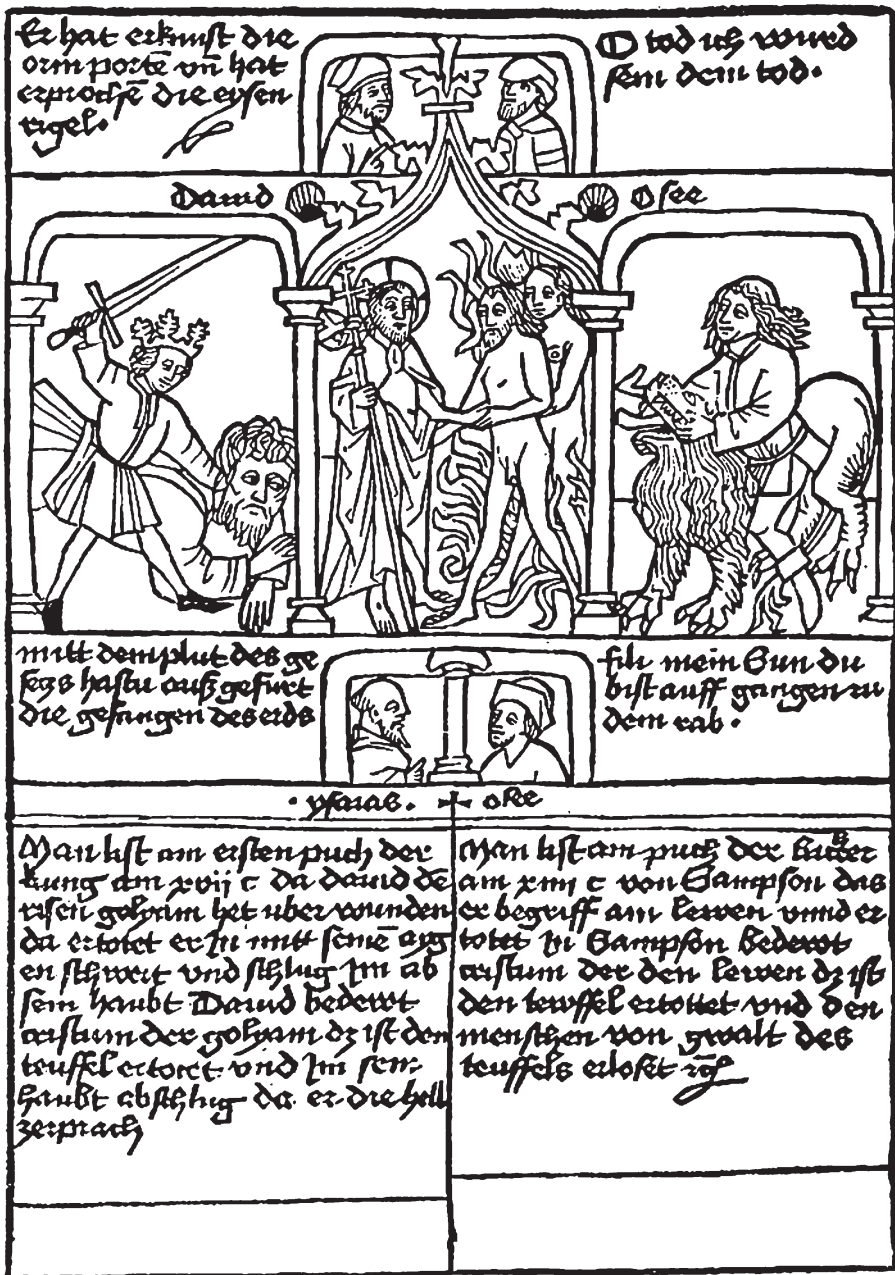 Er hat erknist die
orin portē vn̄ hat
erprochē die eysen
rigel.
O tod ich wurd
sein dein tod.
Dauid
Osee
mitt dem plut des ge
secz hastu auß gefurt
die gefangen des erds
fili mein Sun du
bist auff gangen zu
dem rab.
. ysaias .
osee
Man list am ersten puch der
kung am xvij c da dauid dē
risen golyam het uber wunden
da ertotet er In mitt seinē aig
en schwert vnd schlug Im ab
sein haubt Dauid bedewt
cristum der golyam dz ist den
teuffel ertotet vnd Im sein
haubt abschlug da er die hell
zerprach
Man list am puch der Richter
am xiiij c von Sampson das
er begriff ain lewen vnnd er
totet In Sampson bedewt
cristum der den lewen dz ist
den tewffel ertottet vnd den
menschen von gwalt des
teuffels erloset